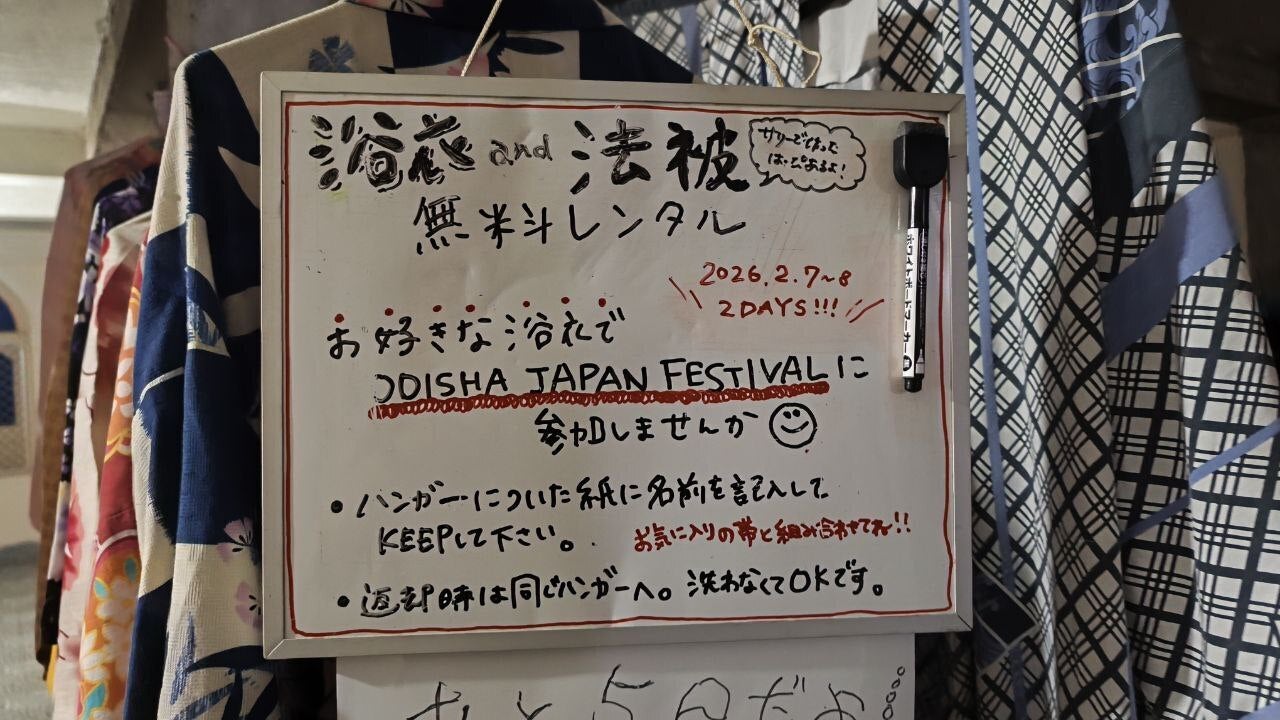 浴衣 and 法被
サリーでつくった
はっぴもあるよ!
無料レンタル
2026.2.7~8
2DAYS!!!
お好きな浴衣で
ODISHA JAPAN FESTIVALに
参加しませんか
・ハンガーについた紙に名前を記入して
KEEPして下さい。
お気に入りの帯と組み合わせてね!!
・返却時は同じハンガーへ。洗わなくてOKです。
ホワイトボードマーカー
あと5日だよ